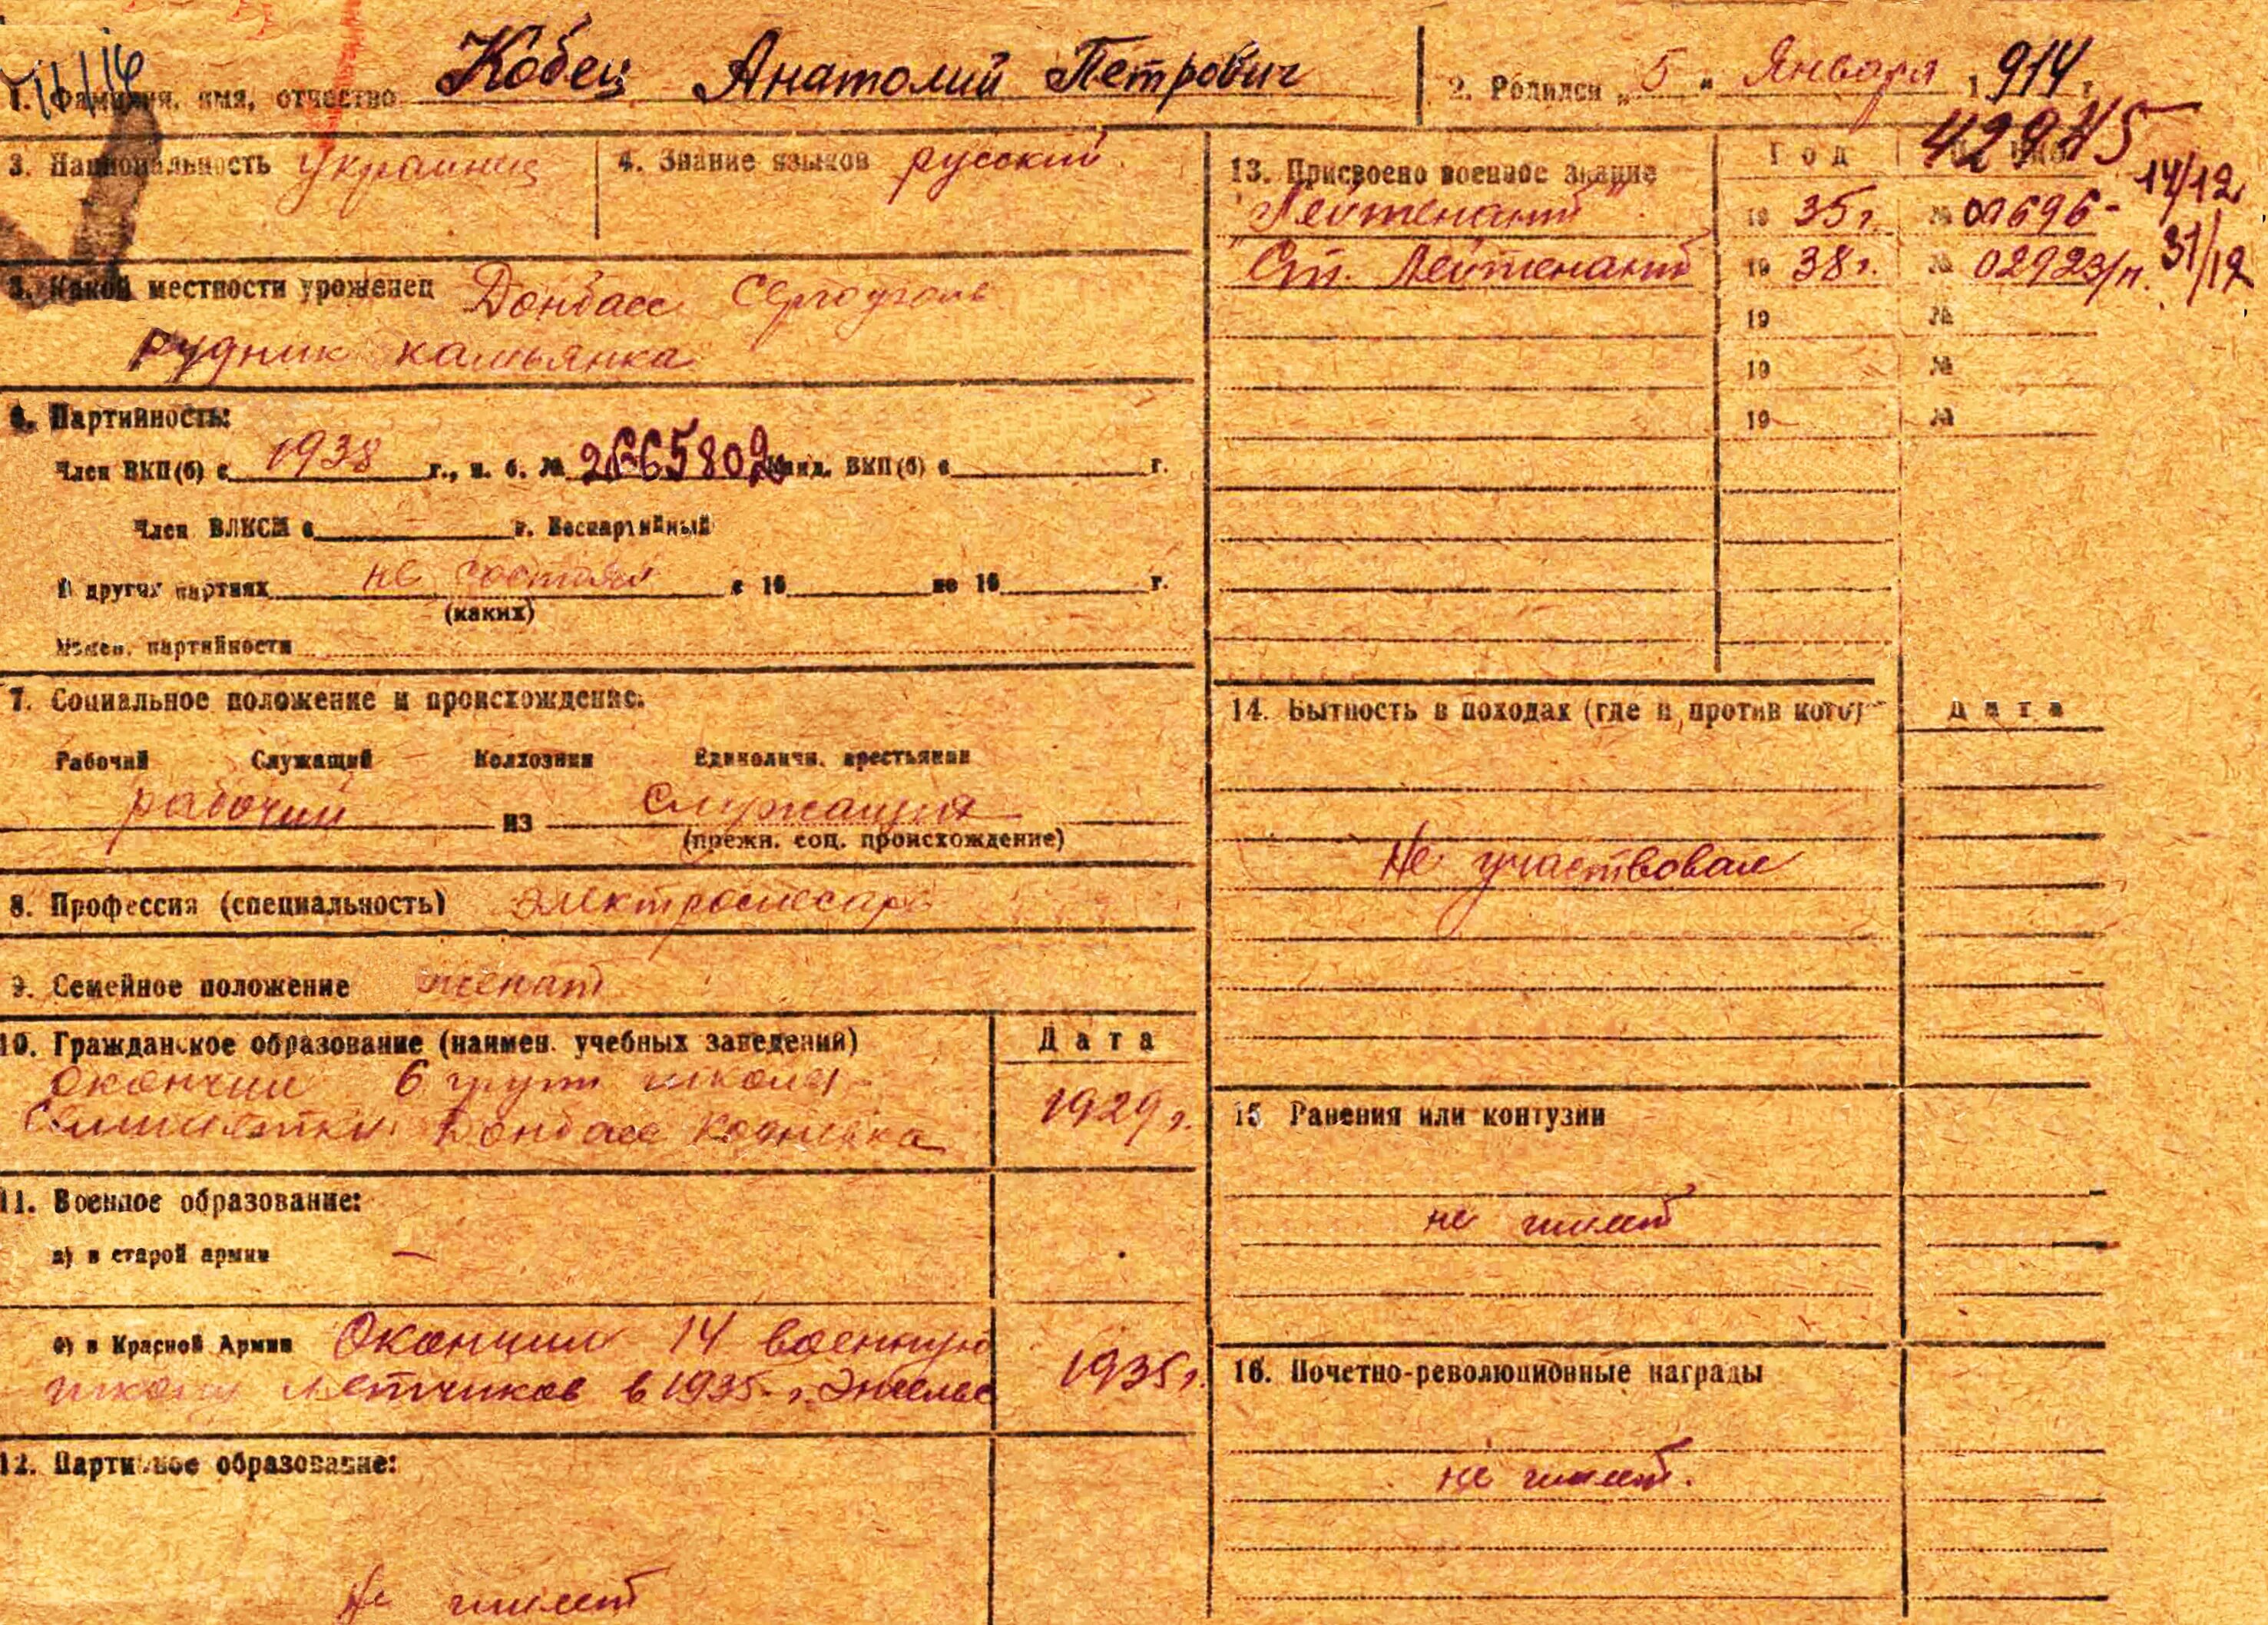 1. Фамилия, имя, отчество Кобец Анатолий Петрович
2. Родился „5" Января 1914 г.
3. Национальность Украинец
4. Знание языков русский
5. Какой местности уроженец Донбасс
рудник камьянка
6. Партийность:
Член ВКП(б) с 1938 г., п. б. № 2665802 Канд. ВКП(б) с г.
Член ВЛКСМ с г. Беспартийный
В других партиях не состоял с 19 по 19 г.
(каких)
Измен. партийности
7. Социальное положение и происхождение:
Рабочий Служащий Колхозник Единоличн. крестьянин
рабочий из служащих
(прежн. соц. происхождение)
8. Профессия (специальность) электрослесарь
9. Семейное положение женат
10. Гражданское образование (наимен. учебных заведений) Дата
окончил 6 групп школы
Семилетки Донбасс 1929 г.
11. Военное образование:
а) в старой армии —
б) в Красной Армии Окончил 14 военную
школу летчиков в 1935 г. Энгельс 1935 г.
12. Партийное образование:
Не имеет
13. Присвоено военное звание Год
42945
"Лейтенант" 19 35 г. № 01696 - 14/12
"Ст. Лейтенант 19 38 г. № 02923/п. 31/12
19 №
19 №
19 №
14. Бытность в походах (где и против кого) Дата
Не участвовал
15 Ранения или контузии
не имеет
16. Почетно-революционные награды
не имеет.